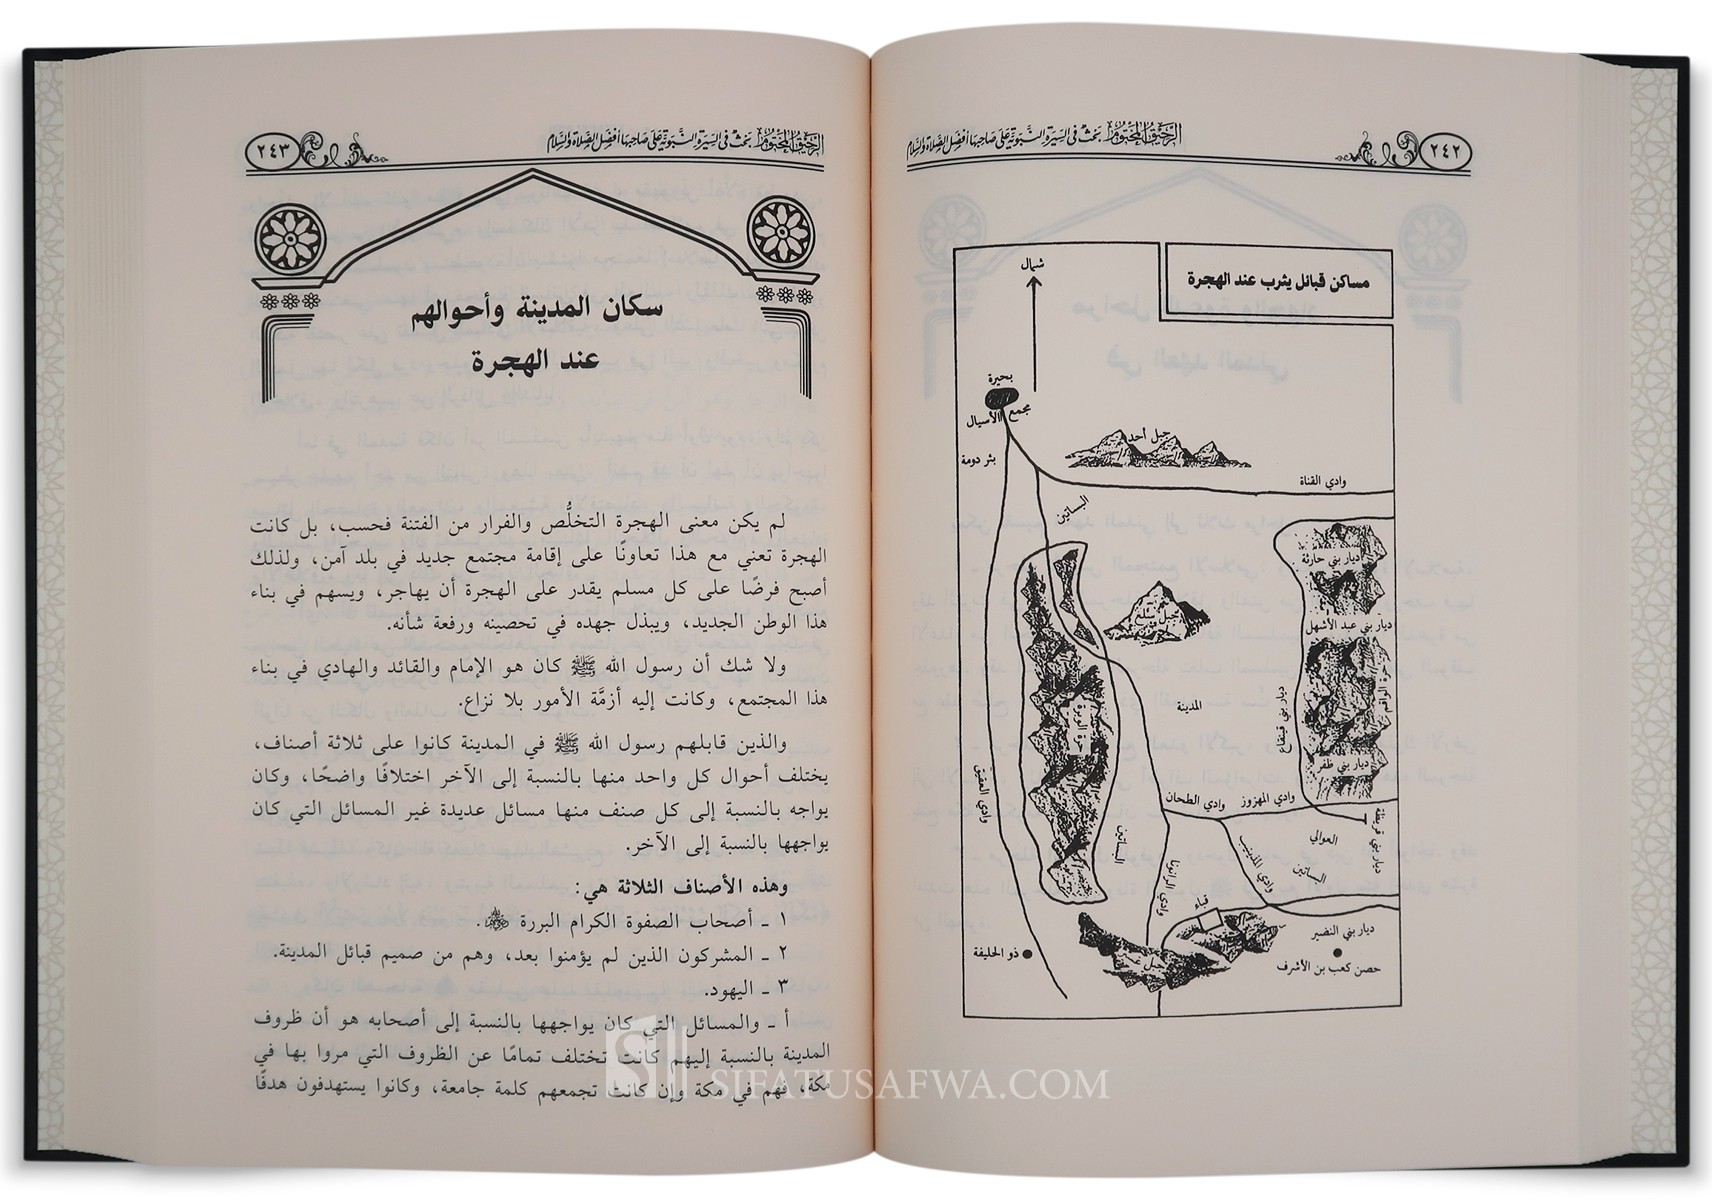 ٢٤٢
الرحيق المختوم بحث في السيرة النبوية على صاحبها أفضل الصلاة والسلام
مساكن قبائل يثرب عند الهجرة
شمال
بحيرة
مجمع الأسيال
جبل أحد
بئر دومة
وادي القناة
البساتين
ديار بني حارثة
جبل سلع
ديار بني عبد الأشهل
حرة الواقم
حرة الوبرة
المدينة
ديار بني قينقاع
ديار بني ظفر
وادي العقيق
وادي المهزوز
وادي الطحان
ديار بني قريظة
العوالي
البساتين
البساتين
وادي المذينيب
وادي الرانونا
قباء
ديار بني النضير
ذو الحليفة
جبل عير
حصن كعب بن الأشرف
٢٤٣
الرحيق المختوم بحث في السيرة النبوية على صاحبها أفضل الصلاة والسلام
سكان المدينة وأحوالهم
عند الهجرة
لم يكن معنى الهجرة التخلُّص والفرار من الفتنة فحسب، بل كانت
الهجرة تعني مع هذا تعاونًا على إقامة مجتمع جديد في بلد آمن، ولذلك
أصبح فرضًا على كل مسلم يقدر على الهجرة أن يهاجر، ويسهم في بناء
هذا الوطن الجديد، ويبذل جهده في تحصينه ورفعة شأنه.
ولا شك أن رسول الله ﷺ كان هو الإمام والقائد والهادي في بناء
هذا المجتمع، وكانت إليه أزمَّة الأمور بلا نزاع.
والذين قابلهم رسول الله ﷺ في المدينة كانوا على ثلاثة أصناف،
يختلف أحوال كل واحد منها بالنسبة إلى الآخر اختلافًا واضحًا، وكان
يواجه بالنسبة إلى كل صنف منها مسائل عديدة غير المسائل التي كان
يواجهها بالنسبة إلى الآخر.
وهذه الأصناف الثلاثة هي:
١ ـ أصحاب الصفوة الكرام البررة.
٢ ـ المشركون الذين لم يؤمنوا بعد، وهم من صميم قبائل المدينة.
٣ ـ اليهود.
أ ـ والمسائل التي كان يواجهها بالنسبة إلى أصحابه هو أن ظروف
المدينة بالنسبة إليهم كانت تختلف تمامًا عن الظروف التي مروا بها في
مكة، فهم في مكة وإن كانت تجمعهم كلمة جامعة، وكانوا يستهدفون هدفًا
SIFATUSAFWA.COM